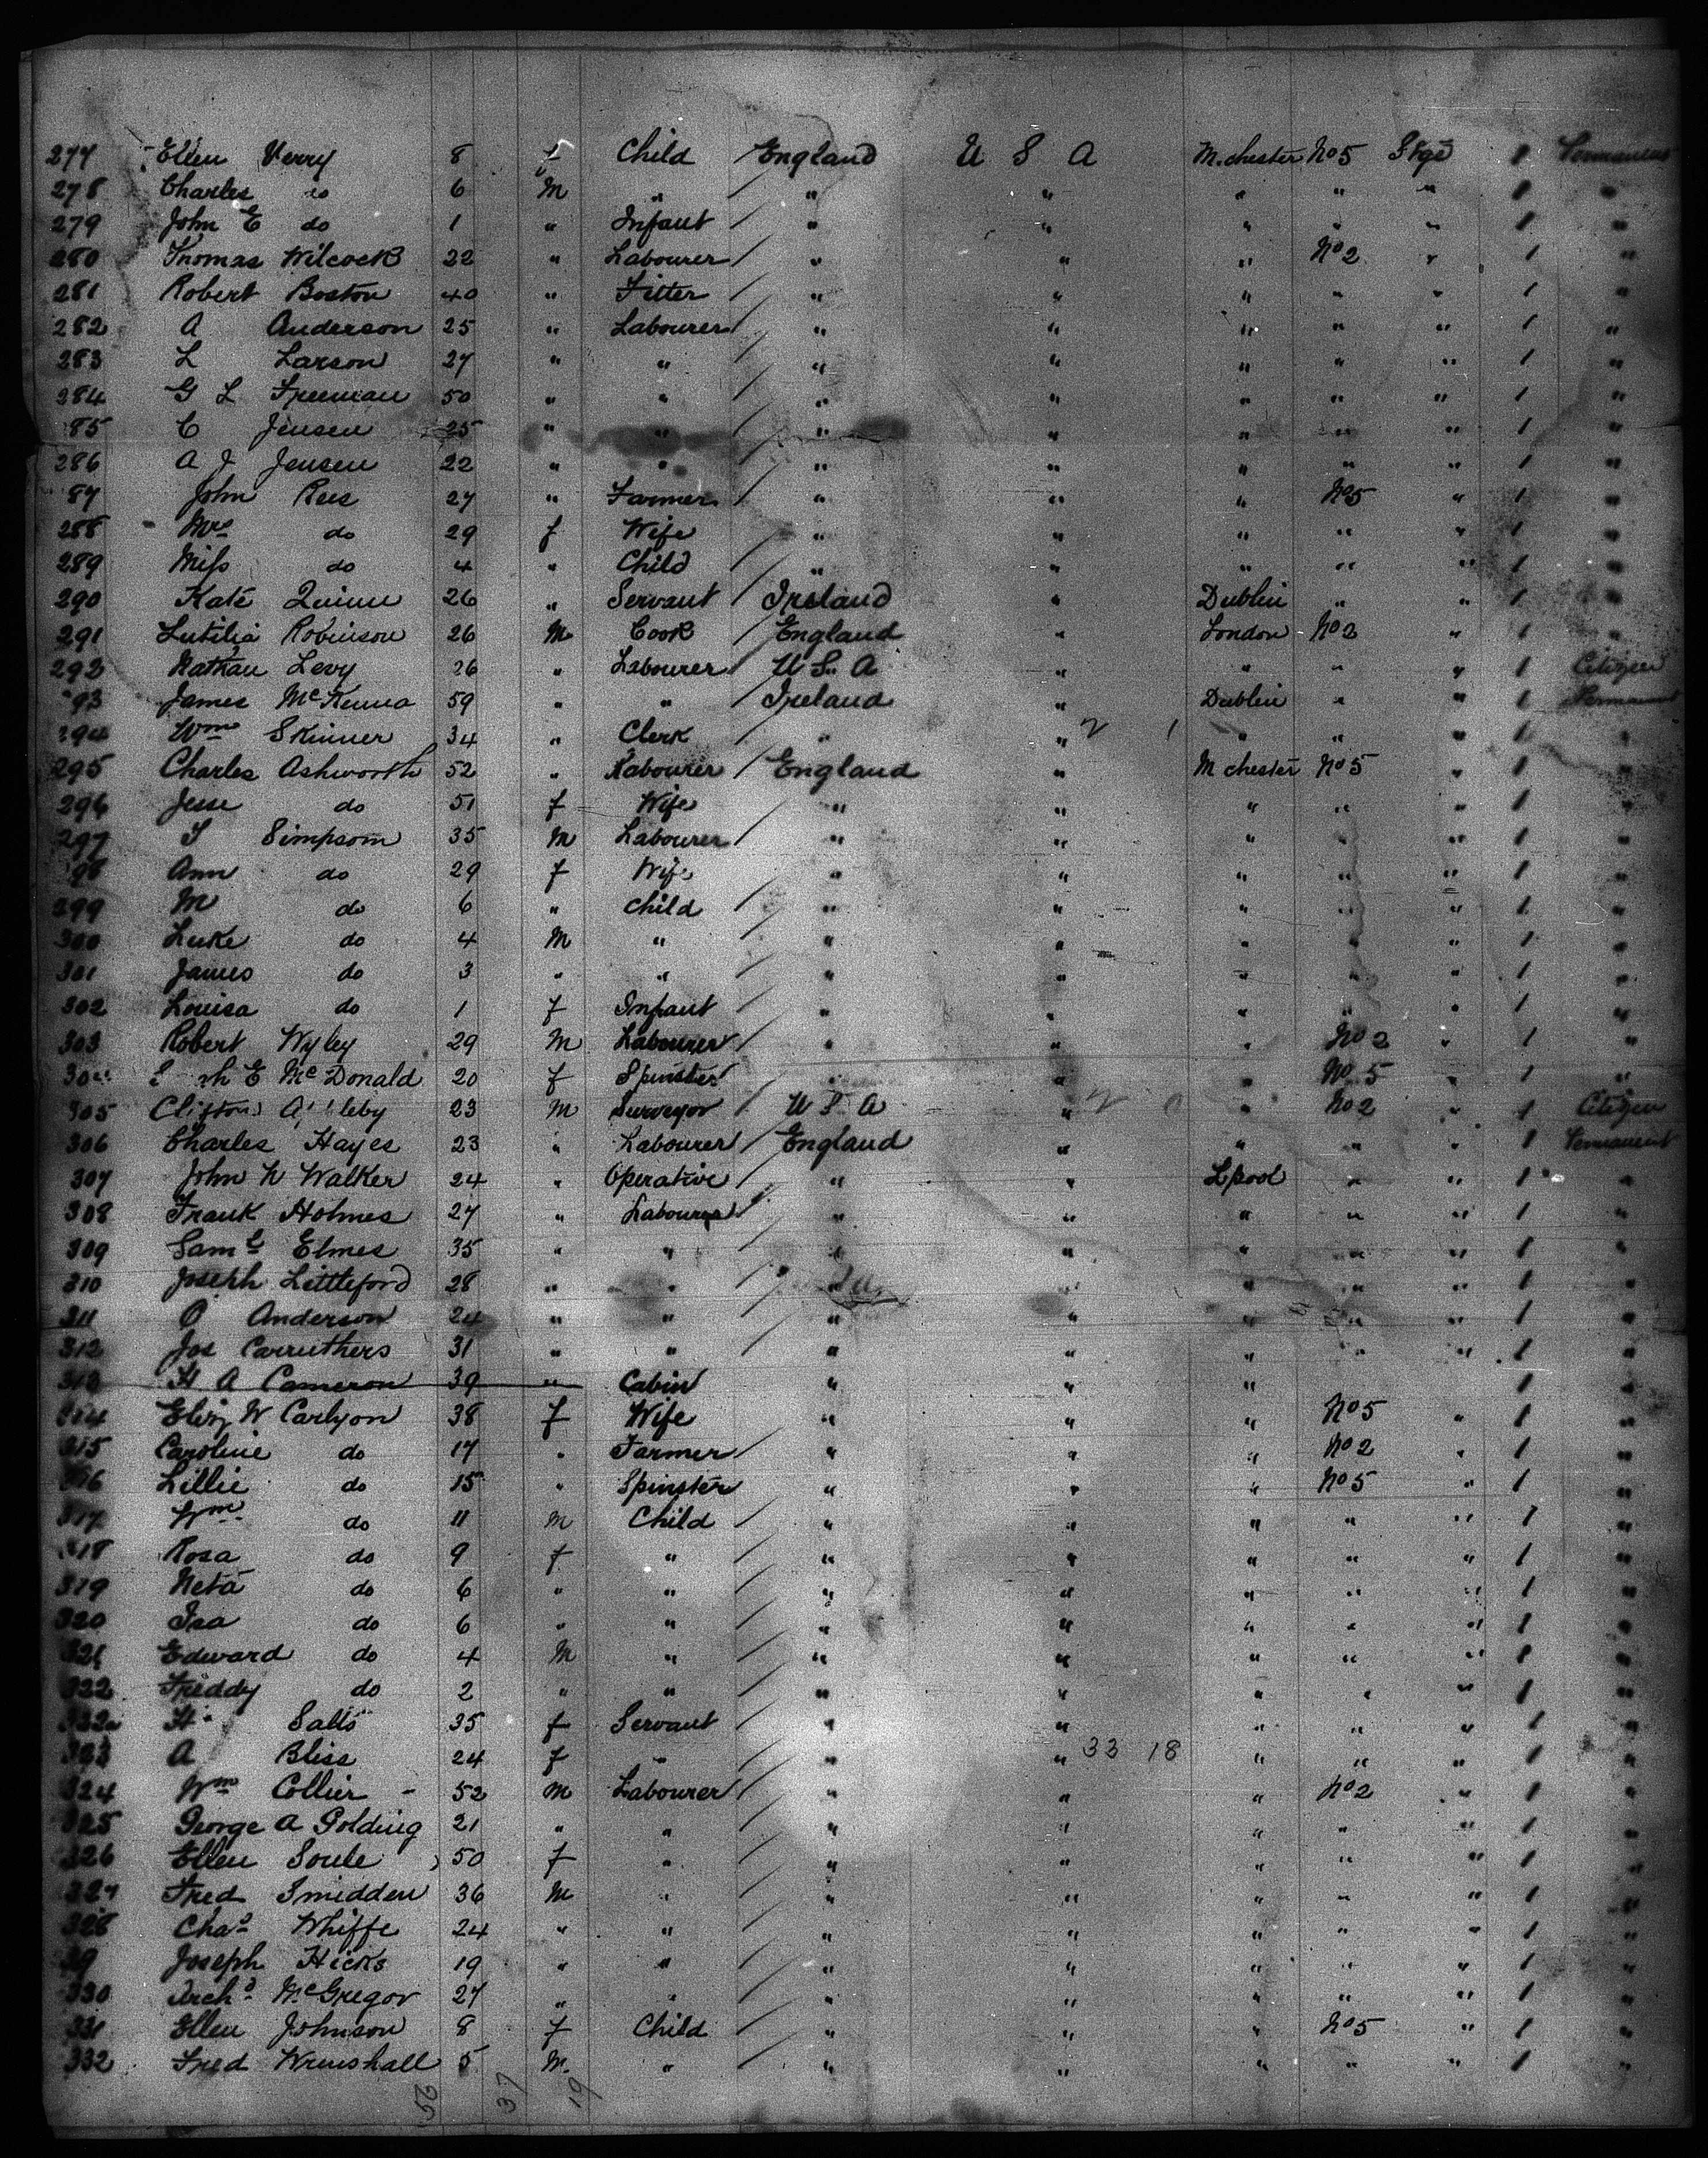 277 Ellen Verry 8 f Child England U S A M.chester No 5 Stge 1
278 Charles do 6 M " " " " " " 1 "
279 John E do 1 " Infant " " " " " 1 "
280 Thomas Wilcock 22 " Labourer " " " No 2 " 1 "
281 Robert Boston 40 " Fitter " " " " " 1 "
282 A Anderson 25 " Labourer " " " " " 1 "
283 L Larson 27 " " " " " " " 1 "
284 G L Freeman 50 " " " " " " " 1 "
85 C Jensen 25 " " " " " " " 1 "
286 A J Jensen 22 " " " " " " " 1 "
87 John Rees 27 " Farmer " " " No 5 " 1 "
288 Mrs do 29 f Wife " " " " " 1 "
289 Miss do 4 " Child " " " " " 1 "
290 Kate Quinn 26 " Servant Ireland " Dublin " " 1 "
291 Lutilia Robinson 26 M Cook England " London No 2 " 1 "
292 Nathan Levy 26 " Labourer U S A " " " " 1 Citizen
93 James McKenna 59 " " Ireland " Dublin " " 1 Permanent
294 Wm Skinner 34 " Clerk " " 2 1 " " " 1 "
295 Charles Ashworth 52 " Labourer England " M chester No 5 " 1 "
296 Jesse do 51 f Wife " " " " " 1 "
297 Simpson 35 M Labourer " " " " " 1 "
98 Ann do 29 f Wife " " " " " 1 "
299 M do 6 " Child " " " " " 1 "
300 Luke do 4 M " " " " " " 1 "
301 James do 3 " " " " " " " 1 "
302 Louisa do 1 f Infant " " " " " 1 "
303 Robert Wyley 29 M Labourer " " " No 2 " 1 "
E McDonald 20 f Spinster " " " No 5 " 1 "
305 Clifton 23 M Surveyor U S A " 2 " No 2 " 1 Citizen
306 Charles Hayes 23 " Labourer England " " " " 1 Permanent
307 John N Walker 24 " Operative " " Lpool " " 1 "
308 Frank Holmes 27 " Labourer " " " " " 1 "
309 Saml Elmes 35 " " " " " " " 1 "
310 Joseph Littleford 28 " " " " " " " 1 "
311 O Anderson 24 " " " " " " " 1 "
312 Jos Carruthers 31 " " " " " " " 1 "
313 H A Cameron 39 " Cabin " " " 1 "
314 Eliz W Carlyon 38 f Wife " " " No 5 " 1 "
315 Caroline do 17 " Farmer " " " No 2 " 1 "
316 Lillie do 15 " Spinster " " " No 5 " 1 "
317 Wm do 11 M Child " " " " " 1 "
318 Rosa do 9 f " " " " " " 1 "
319 Neta do 6 " " " " " " " 1 "
320 Isa do 6 " " " " " " " 1 "
321 Edward do 4 M " " " " " " 1 "
322 Freddy do 2 " " " " " " " 1 "
322a H Salts 35 f Servant " " " " " 1 "
323 A Bliss 24 f " " " 33 18 " " " 1 "
324 Wm Collier - 52 M Labourer " " " No 2 " 1 "
325 George A Golding 21 " " " " " " " 1 "
326 Ellen Soule 50 f " " " " " " 1 "
327 Fred Smidden 36 M " " " " " " 1 "
328 Chas Whiffe 24 " " " " " " " 1 "
Joseph Hicks 19 " " " " " " " 1 "
330 Archd McGregor 27 " " " " " " " 1 "
331 Ellen Johnson 8 f Child " " " No 5 " 1 "
332 Fred Wrenshall 5 M " " " " " " 1 "
37 19